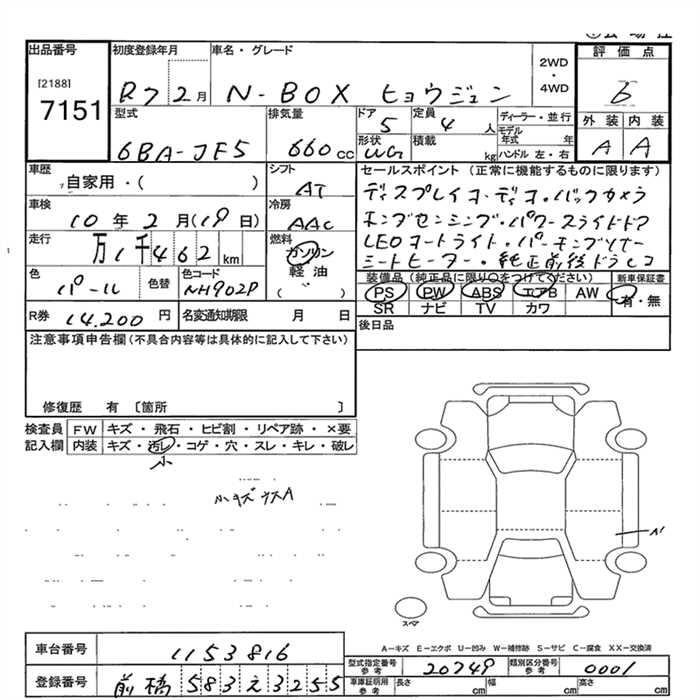 出品番号
[2188]
7151
初度登録年月
R7 2月
車名・グレード
N-BOX ヒョウジュン
2WD
・
4WD
評価点
6
外装 内装
A A
型式
6BA-JF5
排気量
660 cc
ドア
5
形状
WG
定員
4 人
積載
kg
ディーラー・並行
モデル年式 年
ハンドル 左・右
車歴
自家用・( )
シフト
AT
車検
10年2月(19日)
冷房
AAC
走行
万1千462 km
燃料
ガソリン
軽油
( )
色
パール
色替
色コード
NH902P
R券 14,200円
名変通知期限 月 日
セールスポイント (正常に機能するものに限ります)
ディスプレイオーディオ・バックカメラ
ホンダセンシング・パワースライドドア
LEDオートライト・パーキングソナー
シートヒーター・純正前後ドラレコ
装備品 (純正品に限り○をつけてください)
新車保証書
PS PW ABS エアB AW
有・無
SR ナビ TV カワ
後日品
注意事項申告欄 (不具合内容等は具体的に記入して下さい)
修復歴 有 [箇所 ]
検査員
記入欄
FW キズ・飛石・ヒビ割・リペア跡・×要
内装 キズ・汚レ・コゲ・穴・スレ・キレ・破レ
小
小キズウスA
A1
スペア
A―キズ E―エクボ U―凹み W―補修跡 S―サビ C―腐食 XX―交換済
車台番号
1153816
登録番号
前橋 583 え 3255
型式指定番号
参考
20749
類別区分番号
参考
0001
車庫証明用
参考
長さ cm
幅 cm
高さ cm